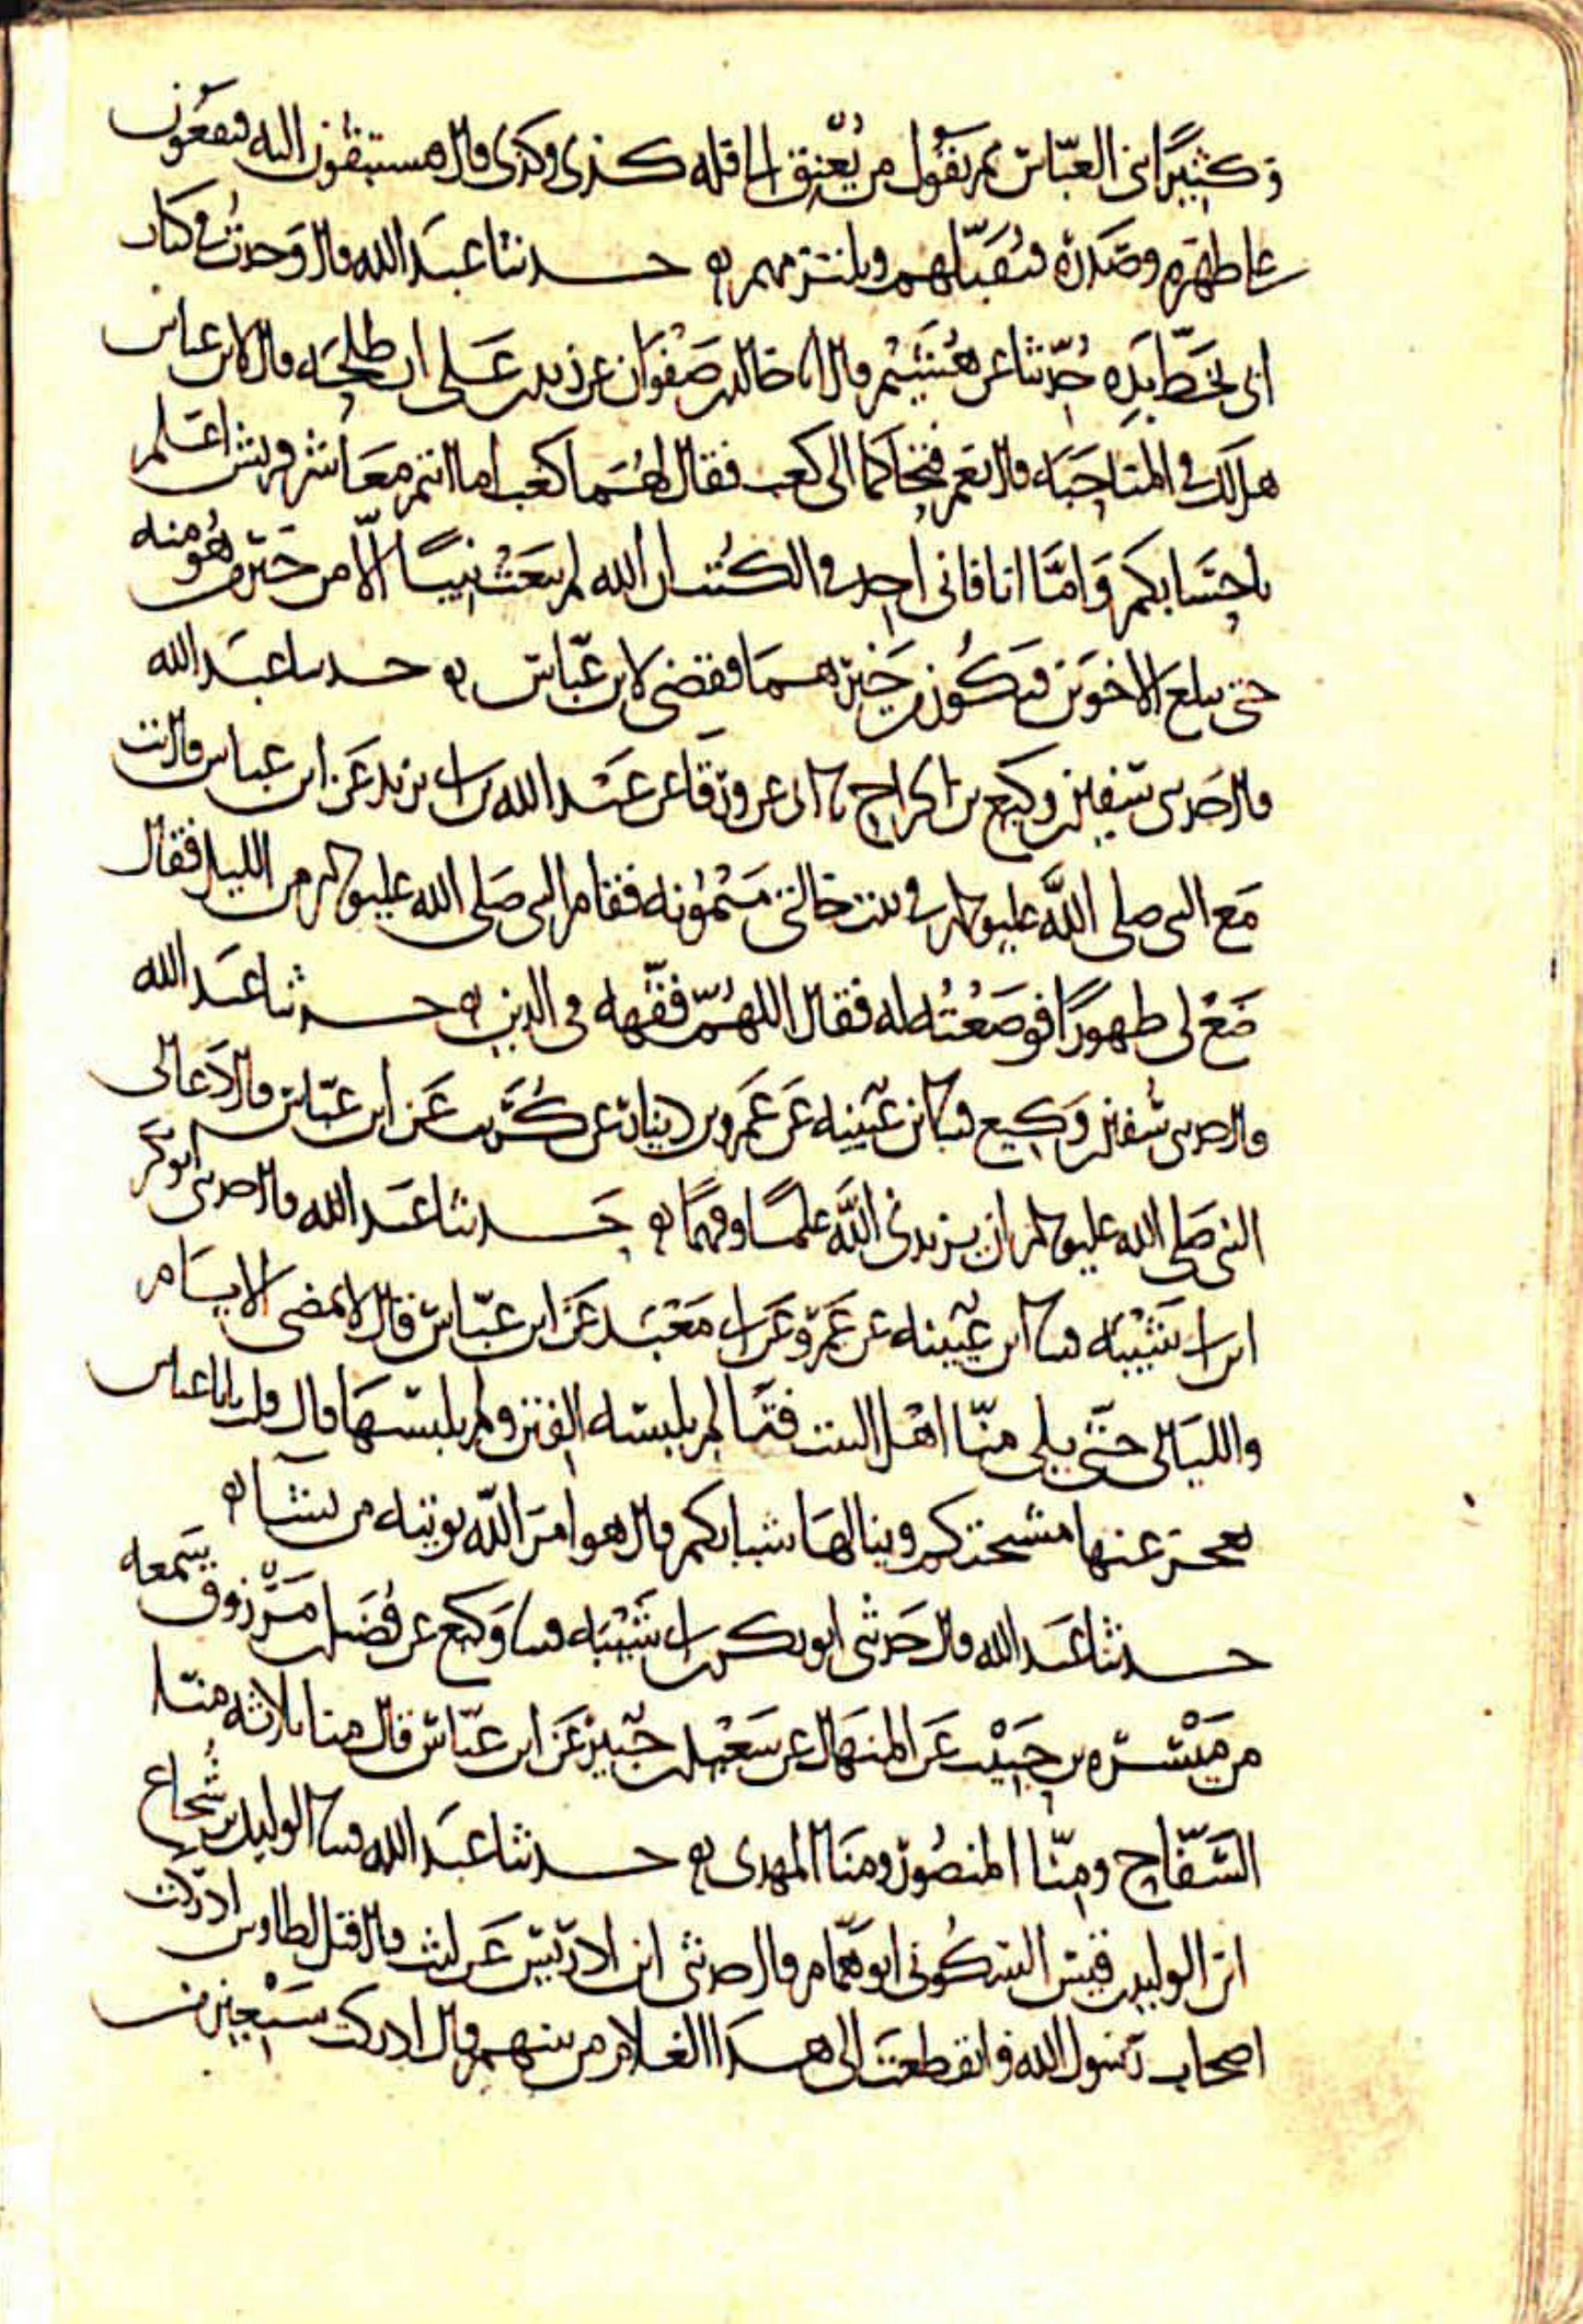 وكثيرا بني العباس ثم يقول من سبق الي فله كذى وكذى قال فيستبقون اليه فيقعون
على ظهره وصدره فيقبلهم ويلتزمهم حدثنا عبد الله قال وجدت في كتاب
ابي بخط يده حدثنا عن هشيم قال انا خالد بن صفوان عن زيد بن علي ان طلحة قال لابن عباس
هل لك في المناحبة قال نعم فتحاكما الى كعب فقال لهما كعب اما انتم معاشر قريش اعلم
باحسابكم واما انا فاني اجد في الكتب ان الله لم يبعث نبيا الا من خير من هو منه
حتى يبلغ الاخوين فيكون من خيرهما فقضى لابن عباس حدثنا عبد الله
قال حدثني سفين بن وكيع بن الجراح نا ابي عن ورقا عن عبد الله بن ابي يزيد عن ابن عباس قال بت
مع النبي صلى الله عليه وسلم في بيت خالتي ميمونه فقام النبي صلى الله عليه وسلم من الليل فقال
ضع لي طهورا فوضعته له فقال اللهم فقهه في الدين حدثنا عبد الله
قال حدثني سفين بن وكيع قثنا ابن عيينه عن عمرو بن دينار عن كريب عن ابن عباس قال دعا لي
النبي صلى الله عليه وسلم ان يزيدني الله علما وفهما حدثنا عبد الله قال حدثني ابو بكر
ابن ابي شيبه قثنا ابن عيينه عن عمرو عن ابي معبد عن ابن عباس قال لا تمضي الايام
والليالي حتى يلي منا اهل البيت فتى لم يلبسه الفتن ولم يلبسها قال قلت يابا عباس
يعجز عنها مشيختكم وينالها شبابكم قال هو امر الله يوتيه من يشا
حدثنا عبد الله قال حدثني ابو بكر بن ابي شيبه قثنا وكيع عن فضيل بن مرزوق سمعه
من ميسره بن حبيب عن المنهال عن سعيد بن جبير عن ابن عباس قال منا ثلاثه منا
السفاح ومنا المنصور ومنا المهدي حدثنا عبد الله قثنا الوليد بن شجاع
ابن الوليد بن قيس السكوني ابو همام قال حدثني ابن ادريس عن ليث قال قيل لطاوس ادركت
اصحاب رسول الله وانقطعت الى هذا الغلام من بينهم قال ادركت سبعين من